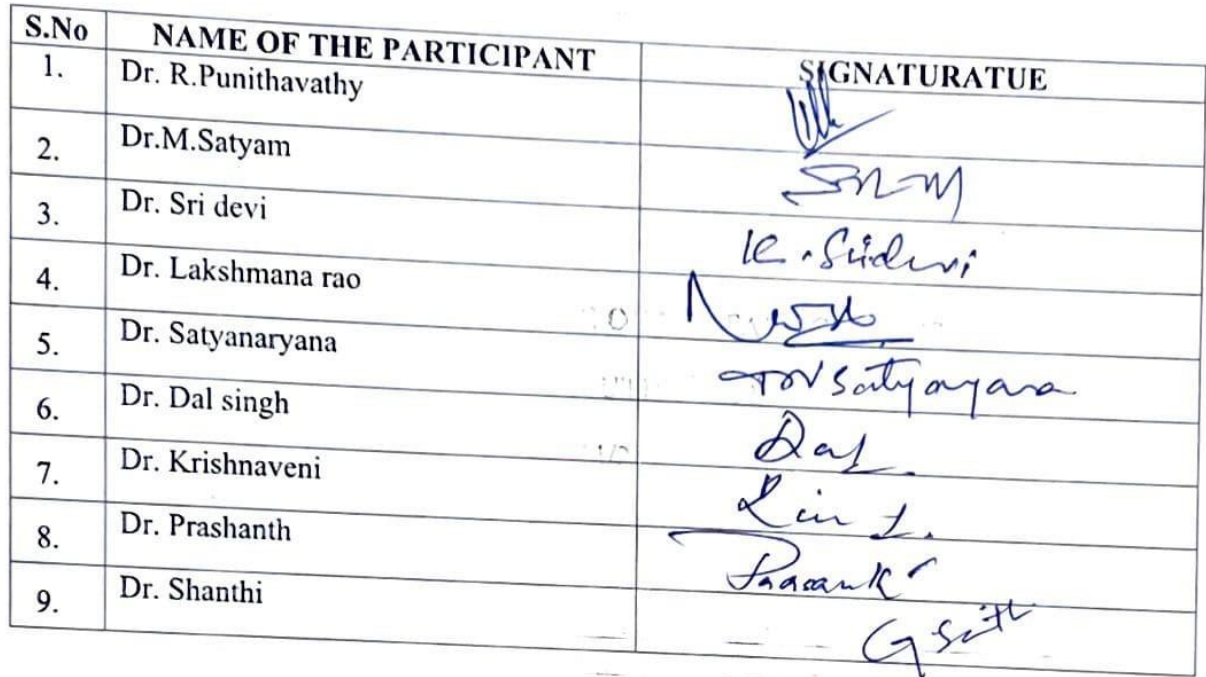 S.No NAME OF THE PARTICIPANT SIGNATURATUE
1. Dr. R.Punithavathy
2. Dr.M.Satyam
3. Dr. Sri devi K. Sridevi
4. Dr. Lakshmana rao
5. Dr. Satyanaryana
6. Dr. Dal singh Dal
7. Dr. Krishnaveni
8. Dr. Prashanth
9. Dr. Shanthi